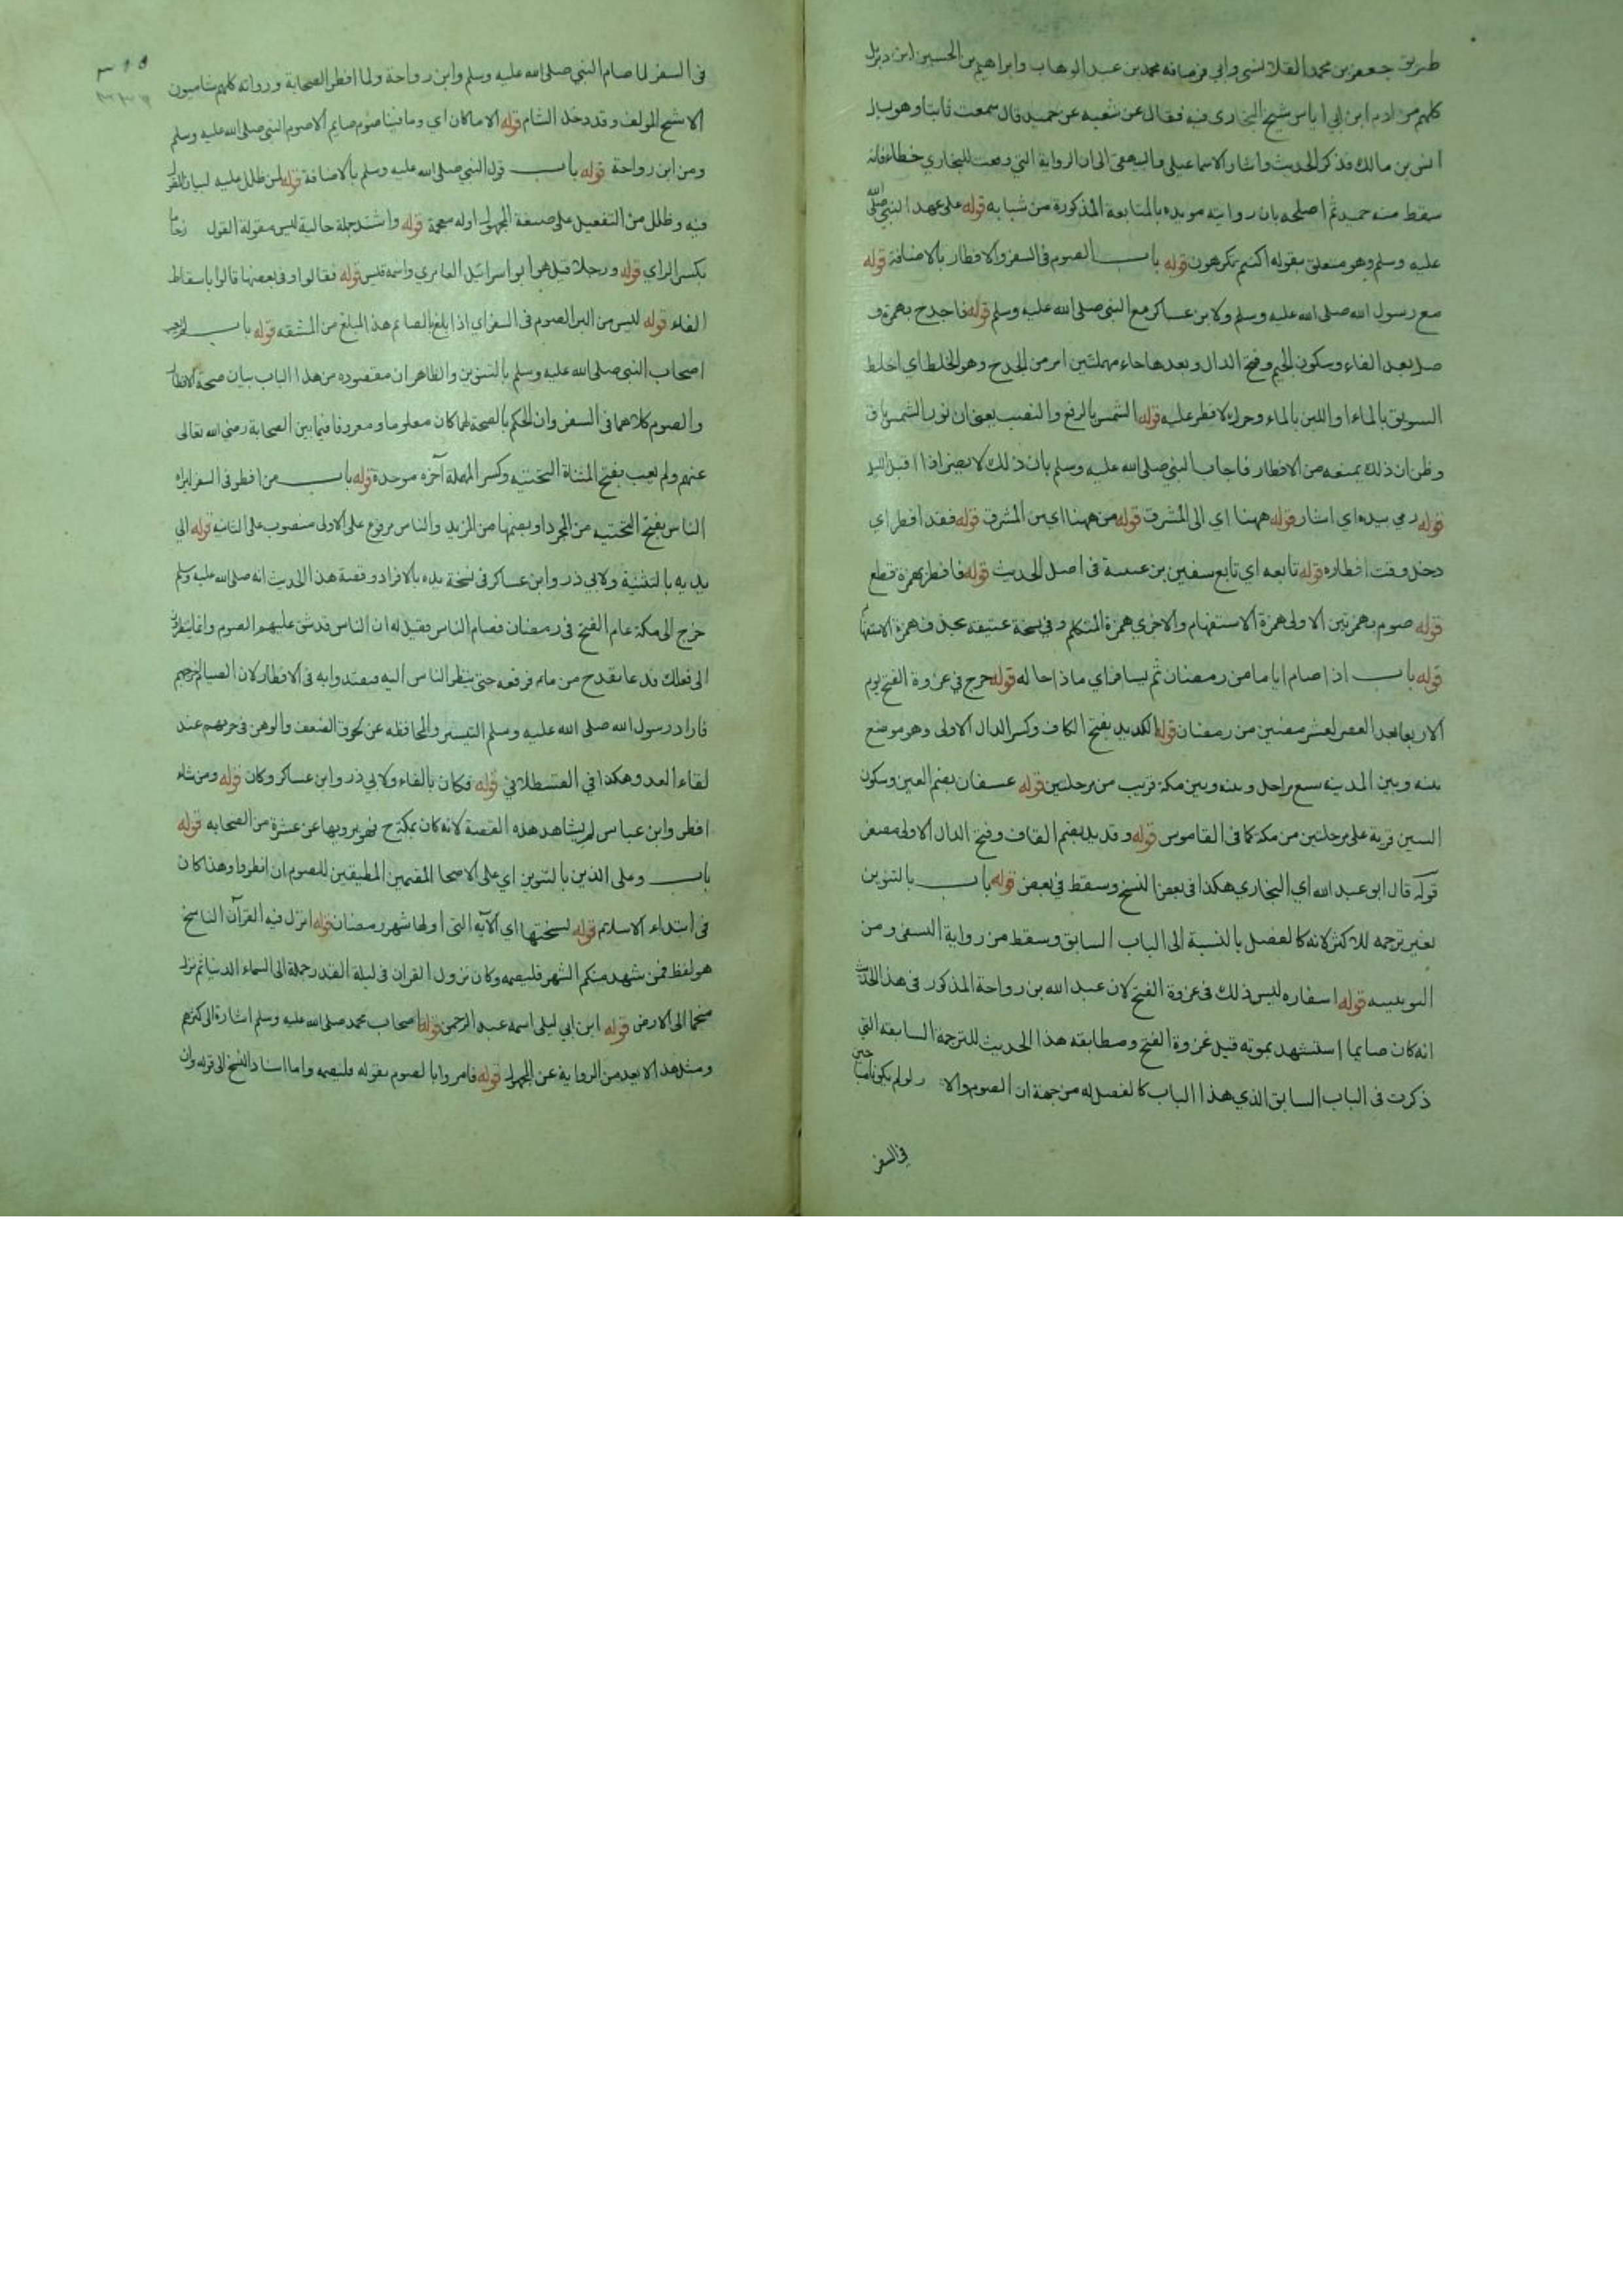 طريق جعفر بن محمد القلانسي وابي قرصافه محمد بن عبد الوهاب وابراهيم بن الحسين ابن ديزيل
كلهم من ادم ابن ابي اياس شيخ البخاري فيه فقال عن شعبه عن حميد قال سمعت ثابتا وهو يسال
انس بن مالك فذكر الحديث واشار الاسماعيلي والبيهقي الى ان الرواية التي وقعت للبخاري خطاء فانه
سقط منه حميد ثم اصلحه بان روايته مويده بالمتابعة المذكورة من شبابه قوله على عهد النبي صلى الله
عليه وسلم وهو متعلق بقوله اكنتم تكرهون قوله باب الصوم في السفر والافطار بالاضافة قوله
مع رسول الله صلى الله عليه وسلم ولابن عساكر مع النبي صلى الله عليه وسلم قوله فاجدح بهمزة
وصل بعد الفاء وسكون الجيم وفتح الدال وبعدها حاء مهملتين امر من الجدح وهو الخلط اي اخلط
السويق بالماء او اللبن بالماء وحركه لافطر عليه قوله الشمس بالرفع والنصب يعني ان نور الشمس باق
وظن ان ذلك يمنعه من الافطار فاجاب النبي صلى الله عليه وسلم بان ذلك لا يضر اذا اقبل الليل
قوله رمي بيده اي اشار قوله ههنا اي الى المشرق قوله من ههنا اي من المشرق قوله فقد افطر اي
دخل وقت افطاره قوله تابعه اي تابع سفين بن عيينة في اصل الحديث قوله فافطر بهمزة قطع
قوله صوم بهمزتين الاولى همزة الاستفهام والاخري همزة المتكلم وفي نسخة عتيقه بحذف همزة الاستفهام
قوله باب اذا صام اياما من رمضان ثم يسافر اي ماذا حاله قوله خرج في غزوة الفتح يوم
الاربعا بعد العصر لعشر مضين من رمضان قوله الكديد بفتح الكاف وكسر الدال الاولى وهو موضع
بينه وبين المدينه سبع مراحل وبينه وبين مكة قريب من مرحلتين قوله عسفان بضم العين وسكون
السين قرية على مرحلتين من مكة كما في القاموس قوله وقديد بضم القاف وفتح الدال الاولى مصغر
قوله قال ابو عبد الله اي البخاري هكذا في بعض النسخ وسقط في بعض قوله باب بالتنوين
بغير ترجمه للاكثر لانه كالفصل بالنسبة الى الباب السابق وسقط من رواية النسفي ومن
اليونينيه قوله اسفاره ليس ذلك في غزوة الفتح لان عبد الله بن رواحة المذكور في هذا الحديث
انه كان صايما استشهد بموته قبل غزوة الفتح ومطابقه هذا الحديث للترجمة السابقه التي
ذكرت في الباب السابق الذي هذا الباب كالفصل له من جهة ان الصوم والا ر لو لم يكونا مباحين
في السفر
في السفر لما صام النبي صلى الله عليه وسلم وابن رواحة ولما افطر الصحابة ورواته كلهم شاميون
الا شيخ المولف وقد دخل الشام قوله الا ما كان اي وما فينا صوم صايم الا صوم النبي صلى الله عليه وسلم
ومن ابن رواحة قوله باب قول النبي صلى الله عليه وسلم بالاضافة قوله لمن ظلل عليه
فيه وظلل من التفعيل على صيغة المجهول اوله معجمة قوله واشتد جملة حالية ليس مقولة القول زحاما
بكسر الزاي قوله ورجلا قيل هو ابو اسرائيل العامري واسمه قيس قوله فقالوا وفي بعضها قالوا باسقاط
الفاء قوله ليس من البر الصوم في السفر اي اذا بلغ بالصايم هذا المبلغ من المشقه قوله باب لم يعب
اصحاب النبي صلى الله عليه وسلم بالتنوين والظاهر ان مقصوده من هذا الباب بيان صحة الافطار
والصوم كلاهما في السفر وان الحكم بالصحة لهما كان معلوما ومعروفا فيما بين الصحابة رضي الله تعالى
عنهم ولم يعب بفتح المثناة التحتيه وكسر المهملة آخره موحدة قوله باب من افطر في السفر ليراه
الناس بفتح التحتيه من المجرد او بضمها من المزيد والناس مرفوع على الاولى منصوب على الثانيه قوله الي
يديه بالتثنية ولابي ذر وابن عساكر في نسخة يده بالافراد وقصة هذا الحديث انه صلى الله عليه وسلم
خرج الى مكة عام الفتح في رمضان فصام الناس فقيل له ان الناس قد شق عليهم الصوم وانما ينظرون
الى فعلك فدعا بقدح من ماء فرفعه حتى ينظر الناس اليه فيقتدوا به في الافطار لان الصيام
فاراد رسول الله صلى الله عليه وسلم التيسير والمحافظه عن لحوق الضعف والوهن في حربهم عند
لقاء العدو هكذا في القسطلاني قوله فكان بالفاء ولابي ذر وابن عساكر وكان قوله ومن شاء
افطر وابن عباس لم يشاهد هذه القصة لانه كان بمكة ح فهو يرويها عن عشرة من الصحابه قوله
باب وعلى الذين بالتنوين اي على الاصحا المقيمين المطيقين للصوم ان افطروا وهذا كان
في ابتداء الاسلام قوله نسختها اي الآيه التي اولها شهر رمضان قوله انزل فيه القرآن الناسخ
هو لفظ فمن شهد منكم الشهر فليصمه وكان نزول القران في ليلة القدر جملة الى السماء الدنيا ثم نزل
منجما الى الارض قوله ابن ابي ليلى اسمه عبد الرحمن قوله اصحاب محمد صلى الله عليه وسلم اشارة الى كثرتهم
ومثل هذا لا يعد من الرواية عن المجهول قوله فامروا بالصوم بقوله فليصمه واما اسناد النسخ الى قوله وان